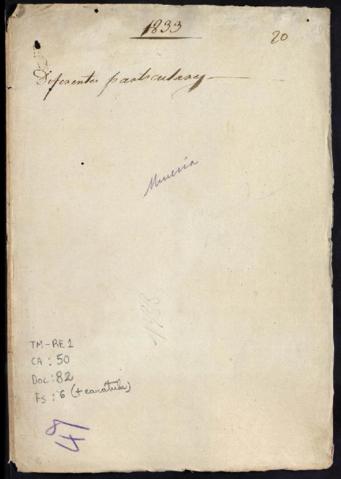 1833
20
Diferentes particulares
Minería
1833
TM-RE1
CA: 50
Doc: 82
Fs: 6 (+ caratula)
48